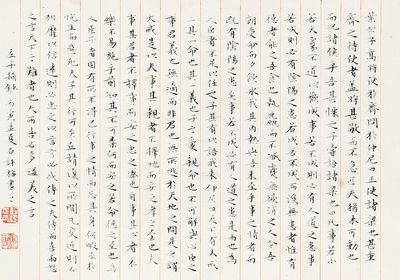 葉公子高將使於齊問於仲尼曰王使諸梁也甚重
齊之待使者蓋將甚敬而不急匹夫猶未可動也
而況諸侯乎吾甚慄之子嘗語諸梁也曰凡事若小
若大寡不道以懽成事若不成則必有人道之患事
若成則必有陰陽之患若成若不成而後無患者惟有
德者能之吾食也執粗而不臧爨無欲清之人今吾
朝受命而夕飲冰我其內熱與吾未至乎事之情而
既有陰陽之患矣事若不成必有人道之患是兩也為
人臣者不足以任之子其有以語我來仲尼曰天下有大戒
二其一命也其一義也子之愛親命也不可解於心臣之
事君義也無適而非君也無所逃於天地之間是之謂
大戒是以夫事其親者不擇地而安之孝之至也夫
事其君者不擇事而安之忠之盛也自事其心者哀
樂不易施乎前知其不可奈何而安之若命德之至也為
人臣子者固有所不得已行事之情而忘其身何暇至於
悅生而惡死夫子其行可矣丘請復以所聞凡交近則必
相靡以信遠則必忠之以言言必或傳之夫傳兩喜兩怒
之言天下之難者也夫兩喜必多溢美之言
莊子摘鈔 孟夏 書